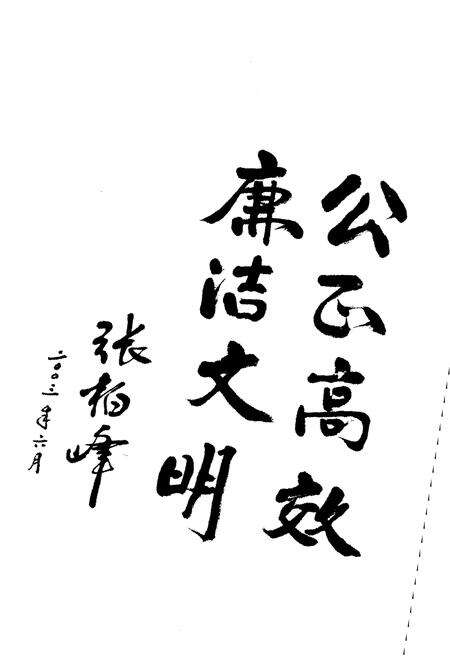 公正高效
廉洁文明
张柏峰
二〇〇三年六月